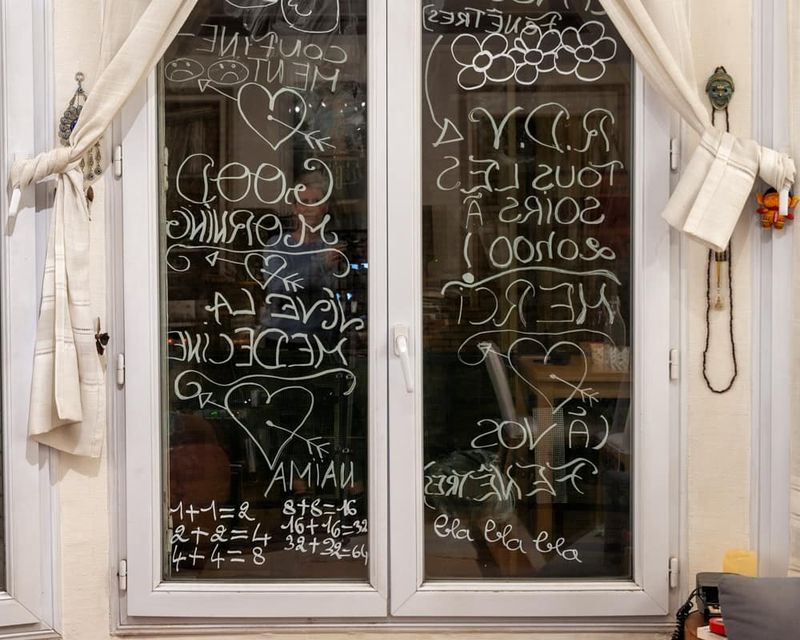 CONFINE-
MENT
GOOD
MORNING
VIVE LA
MEDECINE
NAIMA
1+1=2
2+2=4
4+4=8
8+8=16
16+16=32
32+32=64
FENÊTRES)
R.D.V.
TOUS LES
SOIRS À
20h00!
MERCI
(À VOS
FENÊTRES)
bla bla bla